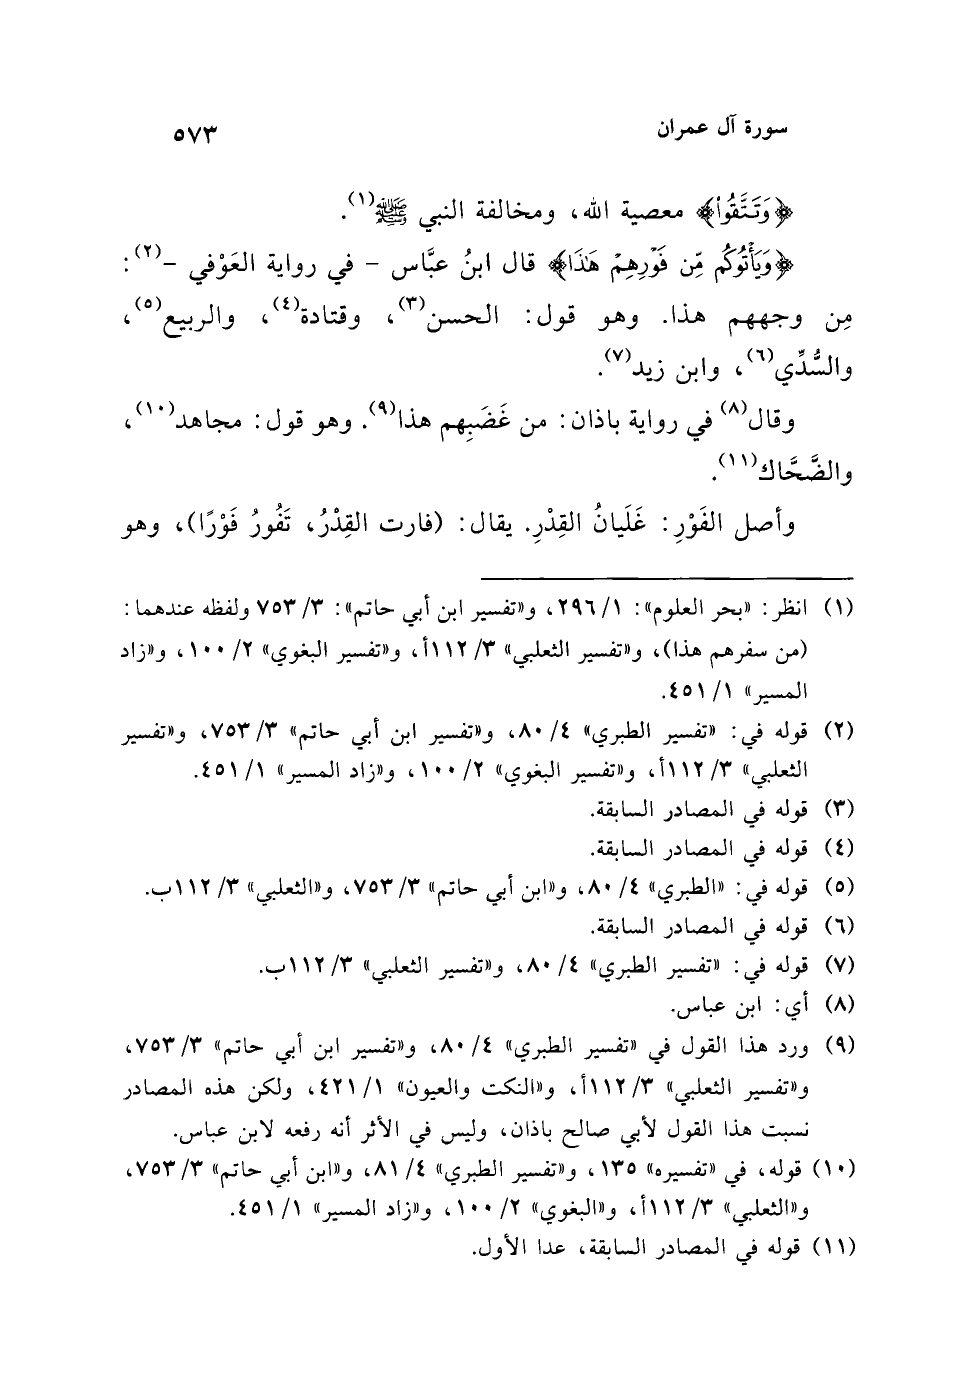 سورة آل عمران ٥٧٣
﴿وَتَتَّقُوا۟﴾ معصية الله، ومخالفة النبي ﷺ(١).
﴿وَيَأْتُوكُم مِّن فَوْرِهِمْ هَٰذَا﴾ قال ابنُ عبَّاس - في رواية العَوْفي -(٢):
مِن وجههم هذا. وهو قول: الحسن(٣)، وقتادة(٤)، والربيع(٥)،
والسُّدِّي(٦)، وابن زيد(٧).
وقال(٨) في رواية باذان: من غَضَبِهم هذا(٩). وهو قول: مجاهد(١٠)،
والضَّحَّاك(١١).
وأصل الفَوْرِ: غَلَيانُ القِدْرِ. يقال: (فارت القِدْرُ، تَفُورُ فَوْرًا)، وهو
(١) انظر: «بحر العلوم»: ١/ ٢٩٦، و«تفسير ابن أبي حاتم»: ٣/ ٧٥٣ ولفظه عندهما:
(من سفرهم هذا)، و«تفسير الثعلبي» ٣/ ١١٢أ، و«تفسير البغوي» ٢/ ١٠٠، و«زاد
المسير» ١/ ٤٥١.
(٢) قوله في: «تفسير الطبري» ٤/ ٨٠، و«تفسير ابن أبي حاتم» ٣/ ٧٥٣، و«تفسير
الثعلبي» ٣/ ١١٢أ، و«تفسير البغوي» ٢/ ١٠٠، و«زاد المسير» ١/ ٤٥١.
(٣) قوله في المصادر السابقة.
(٤) قوله في المصادر السابقة.
(٥) قوله في: «الطبري» ٤/ ٨٠، و«ابن أبي حاتم» ٣/ ٧٥٣، و«الثعلبي» ٣/ ١١٢ب.
(٦) قوله في المصادر السابقة.
(٧) قوله في: «تفسير الطبري» ٤/ ٨٠، و«تفسير الثعلبي» ٣/ ١١٢ب.
(٨) أي: ابن عباس.
(٩) ورد هذا القول في «تفسير الطبري» ٤/ ٨٠، و«تفسير ابن أبي حاتم» ٣/ ٧٥٣،
و«تفسير الثعلبي» ٣/ ١١٢أ، و«النكت والعيون» ١/ ٤٢١، ولكن هذه المصادر
نسبت هذا القول لأبي صالح باذان، وليس في الأثر أنه رفعه لابن عباس.
(١٠) قوله، في «تفسيره» ١٣٥، و«تفسير الطبري» ٤/ ٨١، و«ابن أبي حاتم» ٣/ ٧٥٣،
و«الثعلبي» ٣/ ١١٢أ، و«البغوي» ٢/ ١٠٠، و«زاد المسير» ١/ ٤٥١.
(١١) قوله في المصادر السابقة، عدا الأول.